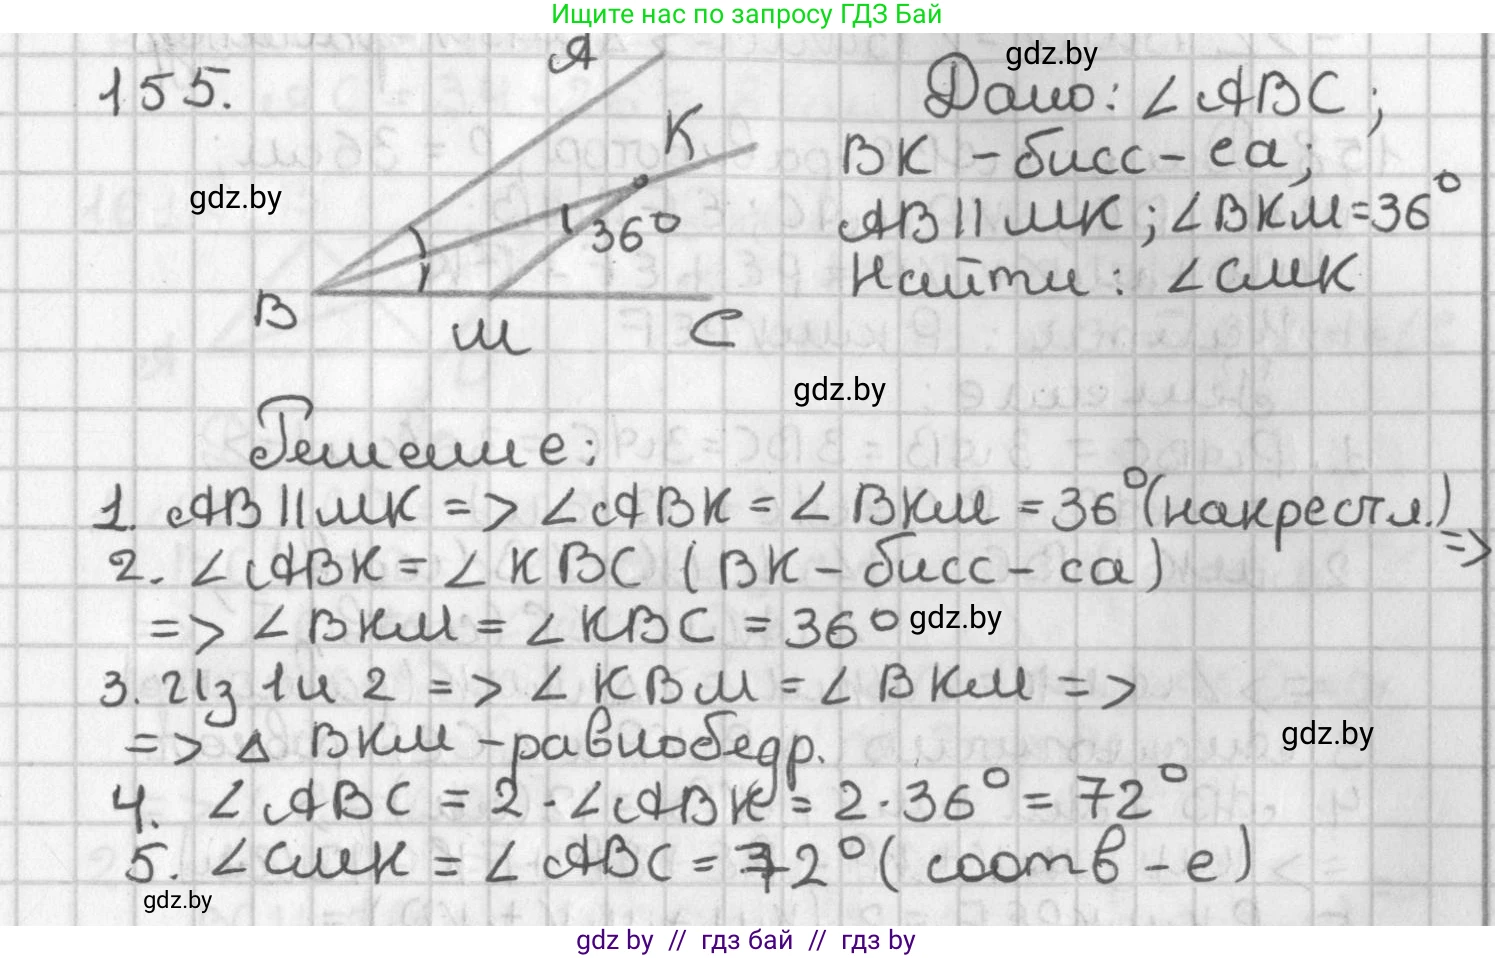 Ищите нас по запросу ГДЗ Бай
155.
A
K
36°
B
M
C
gdz.by
gdz.by
Дано: ∠ABC;
BK - бисс-са;
AB || MK; ∠BKM=36°
Найти: ∠CMK
gdz.by
Решение:
1. AB || MK => ∠ABK = ∠BKM = 36° (накрест л.) =>
2. ∠ABK = ∠KBC (BK - бисс-са)
=> ∠BKM = ∠KBC = 36° gdz.by
3. Из 1 и 2 => ∠KBM = ∠BKM =>
=> △ BKM - равнобедр.
gdz.by
4. ∠ABC = 2 · ∠ABK = 2 · 36° = 72°
5. ∠CMK = ∠ABC = 72° (соотв-е)
gdz.by
gdz by // гдз бай // гдз by